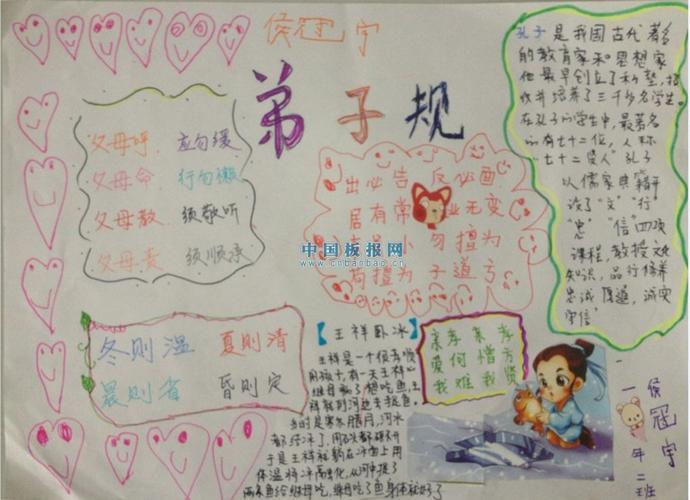 侯冠宇
弟子规
父母呼 应勿缓
父母命 行勿懒
父母教 须敬听
父母责 须顺承
出必告 反必面
居有常 业无变
勿擅为
苟擅为 子道亏
孔子是我国古代著名
的教育家和思想家
他最早创立了私塾,招
收并培养了三千多名学生。
在孔子的学生中,最著名
的有七十二位,人称
"七十二贤人"孔子
以儒家典籍开
设了"文""行"
"忠""信"四项
课程,教授文化
知识,品行修养
忠诚厚道,诚实
守信"
中国板报网
www.cnbanbao.cn
冬则温 夏则清
晨则省 昏则定
【王祥卧冰】
王祥是一个很孝顺
的孩子,有一天王祥的
继母病了想吃鱼,王
祥就到河边去捉鱼。
当时是寒冬腊月,河水
都
于是王祥就躺在冰面上用
体温将冰融化,从河中捉了
两条鱼给继母吃,继母吃了鱼身体就好了
亲孝亲孝
爱何憎方
我难我贤
侯冠宇
一年二班